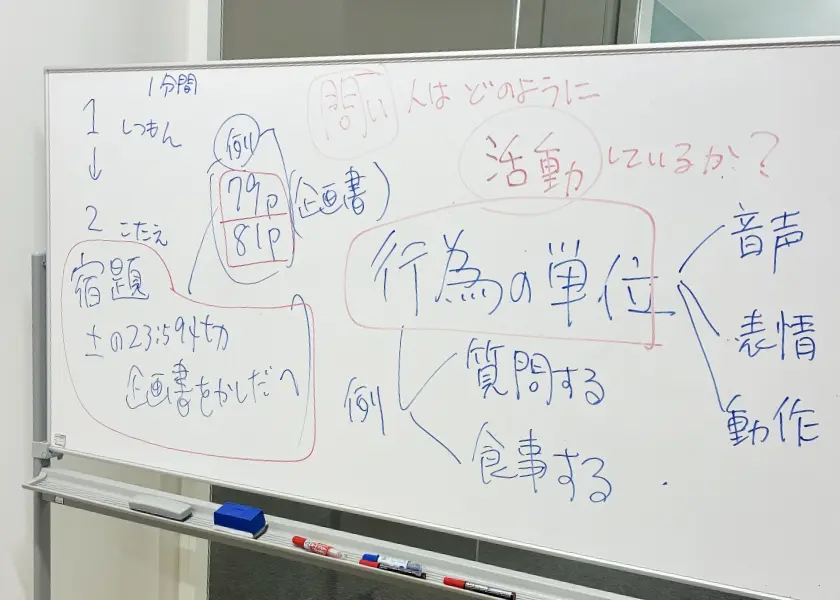 1分間
1 しつもん
↓
2 こたえ
例
79p
81p
(企画書)
宿題
土の23:59〆切
企画書をかしだへ
問い 人はどのように
活動しているか?
行為の単位
音声
表情
動作
例
質問する
食事する